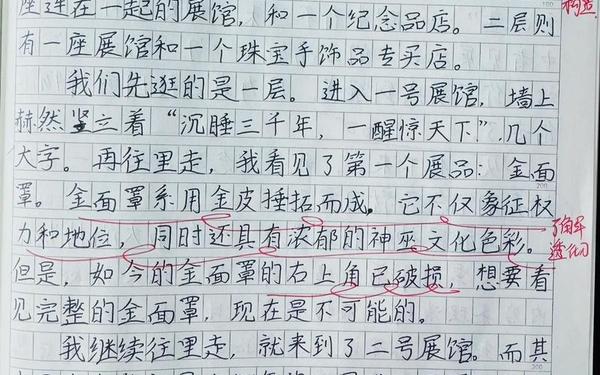 座连在一起的展馆，和一个纪念品店。二层则
构造
有一座展馆和一个珠宝手饰品专买店。
我们先逛的是一层。进入一号展馆，墙上
赫然竖立着“沉睡三千年，一醒惊天下”几个
大字。再往里走，我看见了第一个展品：金面
罩。金面罩系用金皮捶拓而成。它不仅象征权
力和地位，同时还具有浓郁的神巫文化色彩。
了解
透彻
但是，如今的金面罩的右上角已破损，想要看
见完整的金面罩，现在是不可能的。
我继续往里走，就来到了二号展馆。而其